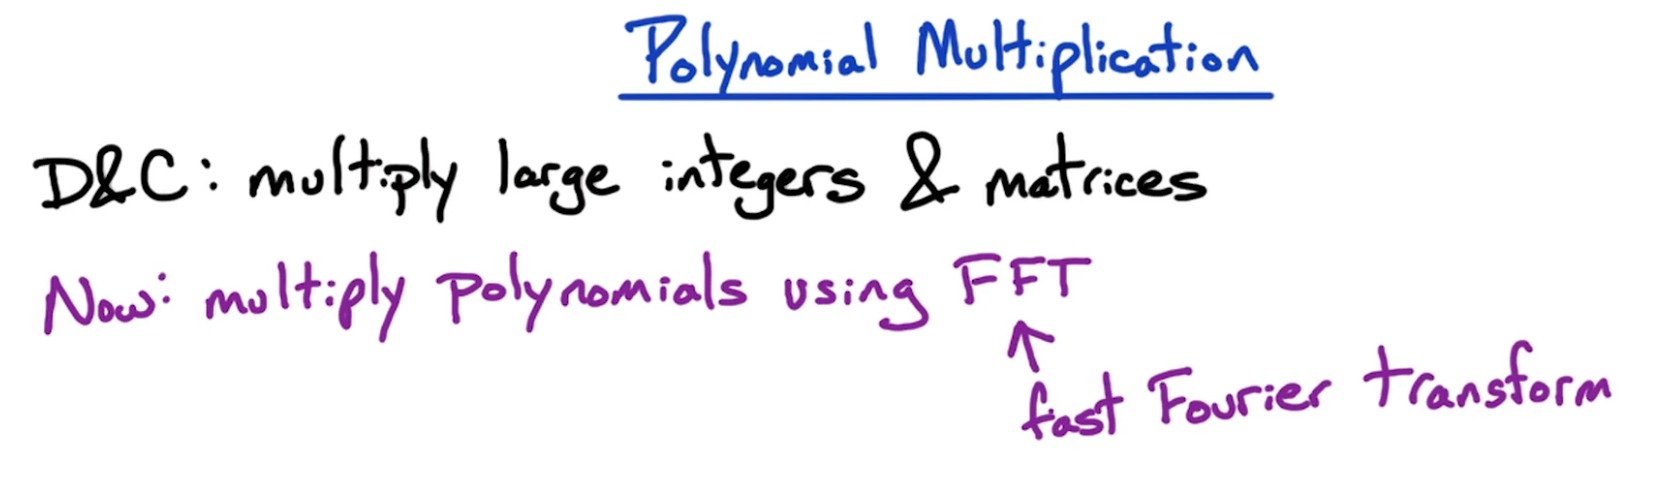 Polynomial Multiplication
D&C: multiply large integers & matrices
Now: multiply polynomials using FFT
fast Fourier transform